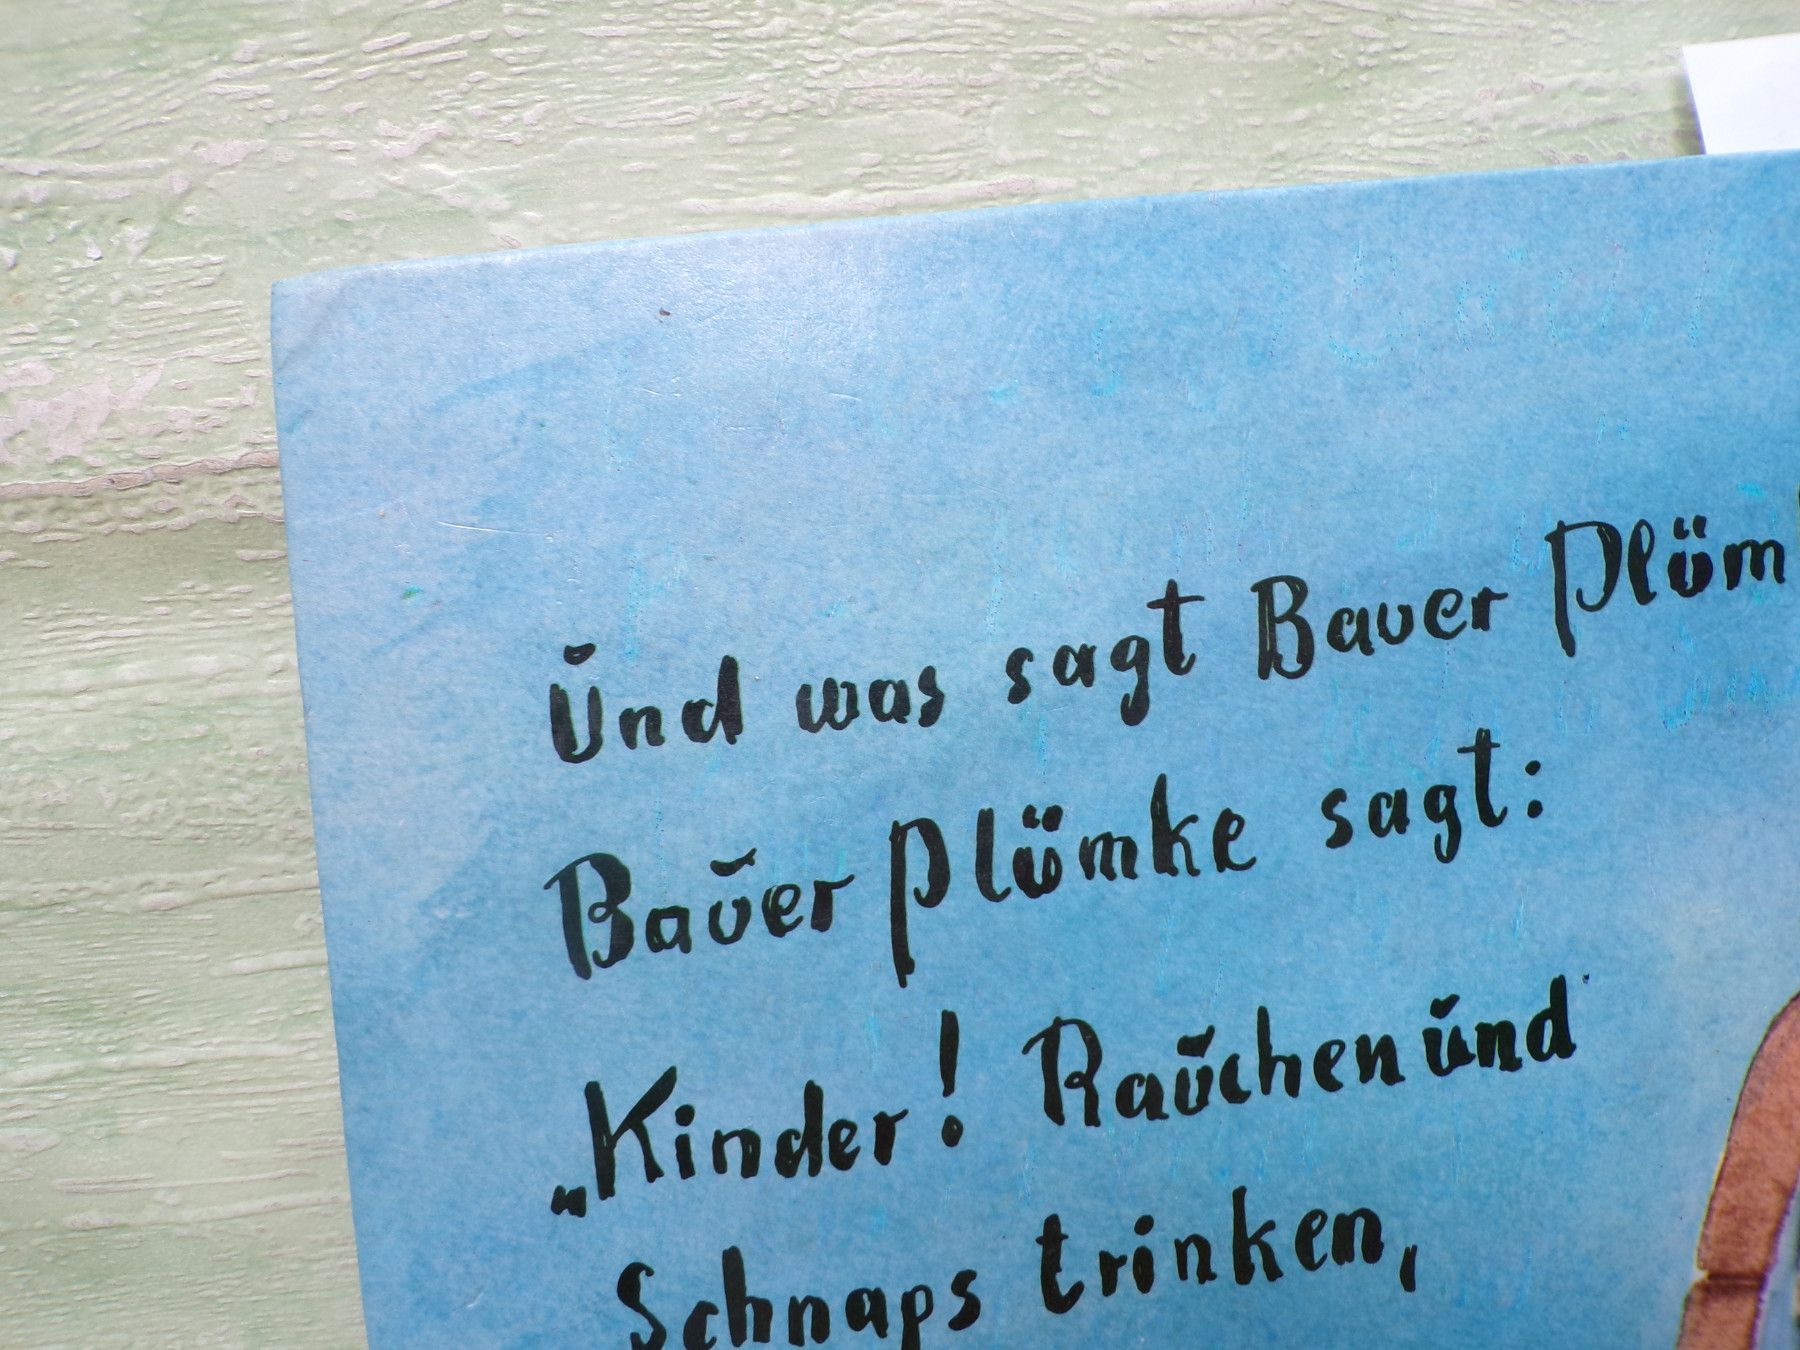 Und was sagt Bauer Plüm
Bauer Plümke sagt:
„Kinder! Rauchen und
Schnaps trinken,